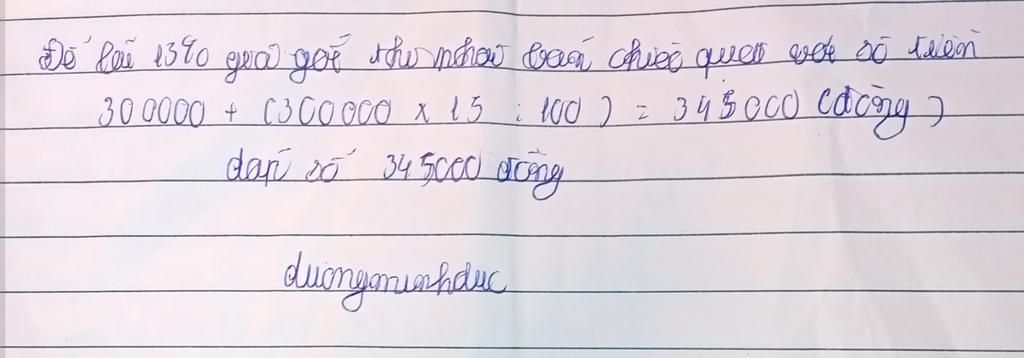 Để lãi 15% giá gốt thì phải bán chiếc quạt với số tiền
300000 + (300000 x 15 : 100) = 345000 (đồng)
đáp số 345000 đồng
duongminhduc